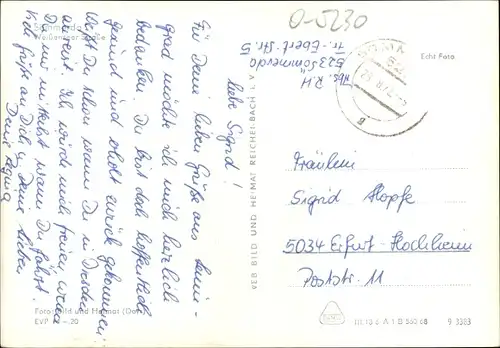 0-5230
Sömmerda
Weißenseer Straße
Liebe Sigrid!
Für Deine lieben Grüße aus Lenin-
grad möchte ich mich herzlich
bedanken. Du bist doch hoffentlich
gesund und erholt zurück gekommen.
Weißt Du schon wann Du in Dresden
anreist. Ich würde mich freuen wenn
Du mir mitteilst wann Du fährst.
Viele Grüße an Dich u. Deine Lieben
Deine Regina
Foto: Bild und Heimat
EVP -,20
VEB BILD UND HEIMAT REICHENBACH I. V.
Abs. R. H
523 Sömmerda
Fr. Ebert-Str. 5
Echt Foto
Fräulein
Sigrid Hopfe
5034 Erfurt-Hochheim
Poststr. 11
A 1 B 550/68
9 3303